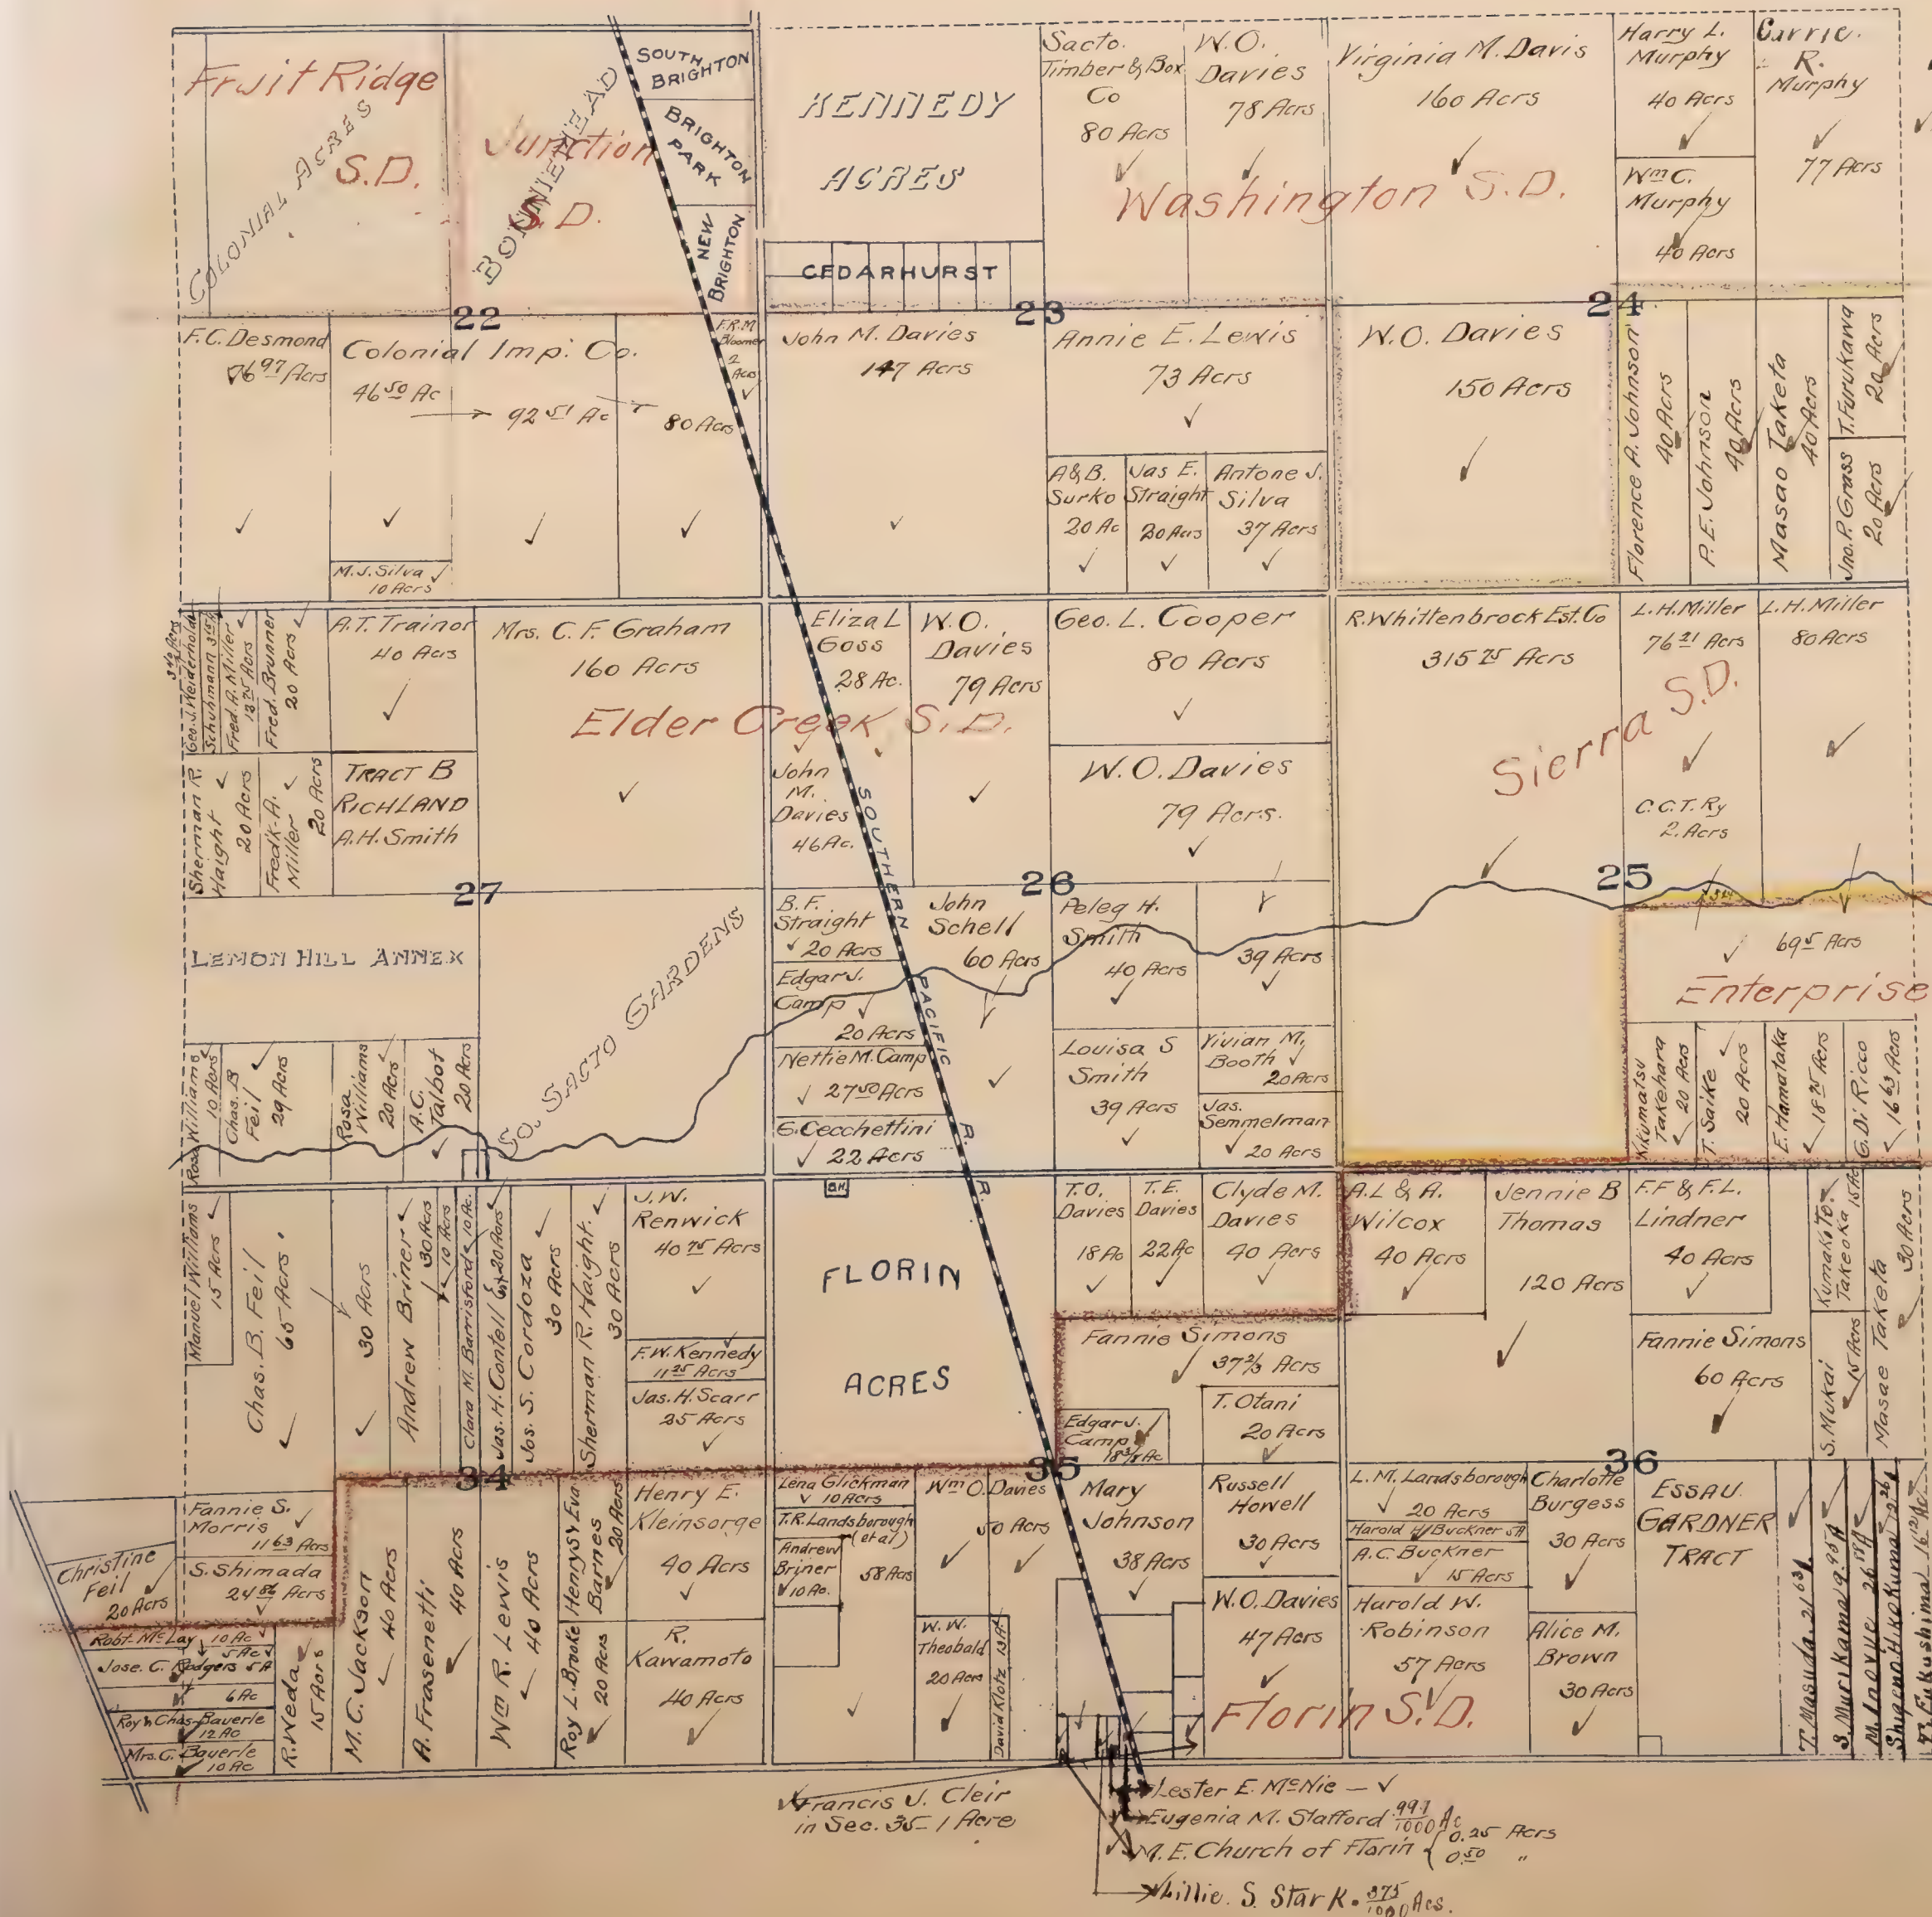 Fruit Ridge
S.D.
COLONIAL ACRES
Junction
S.D.
BONNIEMEAD
SOUTH
BRIGHTON
BRIGHTON
PARK
NEW
BRIGHTON
KENNEDY
ACRES
CEDARHURST
Sacto.
Timber & Box
Co
80 Acrs
W.O.
Davies
78 Acrs
Washington S.D.
Virginia M. Davis
160 Acrs
Harry L.
Murphy
40 Acrs
Wm C.
Murphy
40 Acrs
Carrie.
R.
Murphy
77 Acrs
22
23
24
F.C. Desmond
76 97 Acrs
Colonial Imp. Co.
46 50 Ac
92 51 Ac
80 Acrs
F.R.M.
Bloomer
2
Acrs
M.J. Silva
10 Acrs
John M. Davies
147 Acrs
Annie E. Lewis
73 Acrs
A & B.
Surko
20 Ac
Jas E.
Straight
20 Acrs
Antone J.
Silva
37 Acrs
W.O. Davies
150 Acrs
Florence A. Johnson
40 Acrs
P.E. Johnson
40 Acrs
Masao Taketa
40 Acrs
T. Furukawa
20 Acrs
Jno. P. Grass
20 Acrs
Geo. J. Weiderholdt
Schuhmann
Fred. A. Miller
13 75 Acrs
Fred. Brunner
20 Acrs
A.T. Trainor
40 Acrs
Mrs. C. F. Graham
160 Acrs
Elder Creek S.D.
Eliza L
Goss
28 Ac.
W.O.
Davies
79 Acrs
Geo. L. Cooper
80 Acrs
R. Whittenbrock Est. Co
315 75 Acrs
L.H. Miller
76 21 Acrs
L.H. Miller
80 Acrs
Sierra S.D.
C.C.T. Ry
2. Acrs
Sherman R.
Haight
20 Acrs
Fred'k. A.
Miller
20 Acrs
TRACT B
RICHLAND
A.H. Smith
John
M.
Davies
46 Ac.
W.O. Davies
79 Acrs.
SOUTHERN PACIFIC R. R.
27
26
25
LEMON HILL ANNEX
SO. SACTO GARDENS
B.F.
Straight
20 Acrs
Edgar J.
Camp
20 Acrs
Nettie M. Camp
27 50 Acrs
G. Cecchettini
22 Acers
John
Schell
60 Acrs
Peleg H.
Smith
40 Acrs
39 Acrs
Louisa S
Smith
39 Acrs
Vivian M.
Booth
20 Acrs
Jas.
Semmelman
20 Acrs
69 5 Acrs
Enterprise
Kikumatsu
Takehara
20 Acrs
T. Saike
20 Acrs
E. Hamataka
18 75 Acrs
G. Di Ricco
16 63 Acrs
Rosa Williams
10 Acrs
Chas. B
Feil
29 Acrs
Rosa
Williams
20 Acrs
A.C.
Talbot
20 Acrs
Manuel Williams
15 Acrs
Chas. B. Feil
65 Acrs
30 Acrs
Andrew Briner
30 Acrs
10 Acrs
Clara M. Barrisford 10 Ac.
Jas. H. Contell 20 Acrs
Jos. S. Cordoza
30 Acrs
Sherman R. Haight.
30 Acrs
J.W.
Renwick
40 75 Acrs
F.W. Kennedy
11 25 Acrs
Jas. H. Scarr
25 Acrs
FLORIN
ACRES
T.O.
Davies
18 Ac
T.E.
Davies
22 Ac
Clyde M.
Davies
40 Acrs
Fannie Simons
37 2/3 Acrs
Edgar J.
Camp
T. Otani
20 Acrs
A.L & A.
Wilcox
40 Acrs
Jennie B
Thomas
120 Acrs
F.F & F.L.
Lindner
40 Acrs
Kumakoto.
Takeoka
15 Ac
Fannie Simons
60 Acrs
S. Mukai
15 Acrs
Masae Taketa
30 Acrs
34
35
36
Fannie S.
Morris
11 63 Acrs
S. Shimada
24 86 Acrs
Christine
Feil
20 Acrs
Robt. McLay 10 Ac
5 Ac
Jose. C. Rodgers 5 A
6 Ac
Roy & Chas. Bauerle
12 Ac
Mrs. C. Bauerle
10 Ac
R. Weda
15 Acrs
M.C. Jackson
40 Acrs
A. Frasenetti
40 Acrs
Wm R. Lewis
40 Acrs
Henry & Eva
Barnes
20 Acrs
Roy L. Brooke
20 Acrs
Henry E.
Kleinsorge
40 Acrs
R.
Kawamoto
40 Acrs
Lena Glickman
10 Acrs
T.R. Landsborough
(et al)
58 Acrs
Andrew
Briner
10 Ac.
Wm O. Davies
50 Acrs
W.W.
Theobald
20 Acrs
David Klotz 13 A
Mary
Johnson
38 Acrs
Russell
Howell
30 Acrs
W.O. Davies
47 Acrs
Florin S.D.
L.M. Landsborough
20 Acrs
Harold H. Buckner 5 A
A.C. Buckner
15 Acrs
Harold W.
Robinson
57 Acrs
Charlotte
Burgess
30 Acrs
Alice M.
Brown
30 Acrs
ESSAU
GARDNER
TRACT
T. Masuda. 21 63
S. Murikama 9.95 A
M. Inouye 26 58 A
Shigeno Hikokuma
T. Fukushima
Francis J. Cleir
in Sec. 35 - 1 Acre
Lester E. McNie
Eugenia M. Stafford 991/1000 Ac
M.E. Church of Florin { 0.25 Acrs
0.50 "
Lillie. S. Stark. 375/1000 Acs.